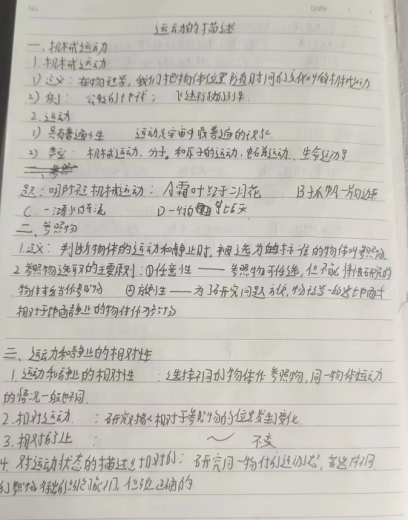 No.
Date
运动的描述
一、机械运动
1. 机械运动
1) 定义：在物理学，我们把物体位置随时间的变化叫做机械运动
2) 例：公路的汽车；飞速行驶的列车.
2. 运动
1) 具有普遍性 运动是宇宙中最普遍的现象.
2) 类型：机械运动、分子、和原子的运动、电磁运动、生命运动等
题：哪项是机械运动：A霜叶红于二月花 B
C. 一 D-
二、参照物
1.定义：判断物体的运动和静止时，被选为的标准的物体叫参照物
2.参照物选取的主要原则：①任意性——参照物可任选，但不能将被研究的
物体本身作参照物 ②方便性——为了研究问题方便，
相对于地面静止的物体作为参照物
三、运动和静止的相对性
1.运动和静止的相对性：选择不同的物体作参照物，同一物体运动
的情况一般不同.
2.相对运动：研究对象相对于参照物的位置发生变化
3.相对静止：～不变
4.对运动状态的描述是相对的：研究同一物体的运动状态，若选择不同
的参照物得出的结论可以不同，但都是正确的